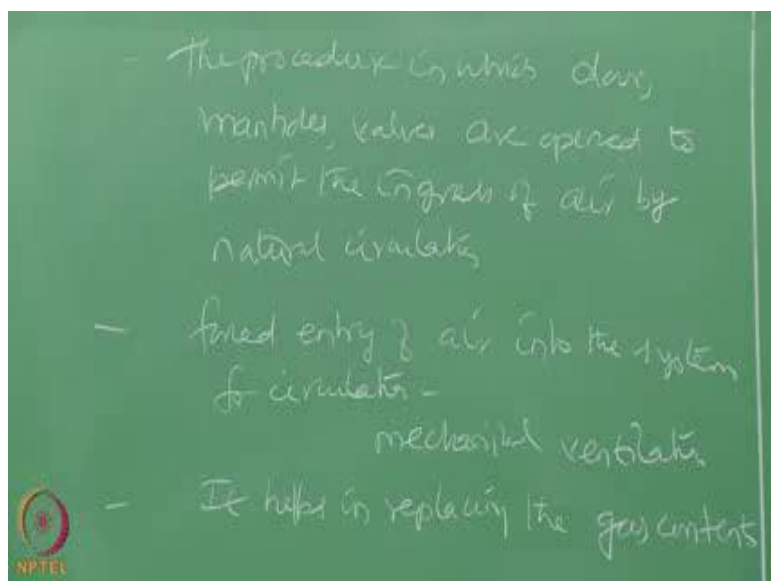 - The procedure in which doors,
manholes, valves are opened to
permit the ingress of air by
natural circulation
- forced entry of air into the system
for circulation -
mechanical ventilation
- It helps in replacing the gas contents
NPTEL